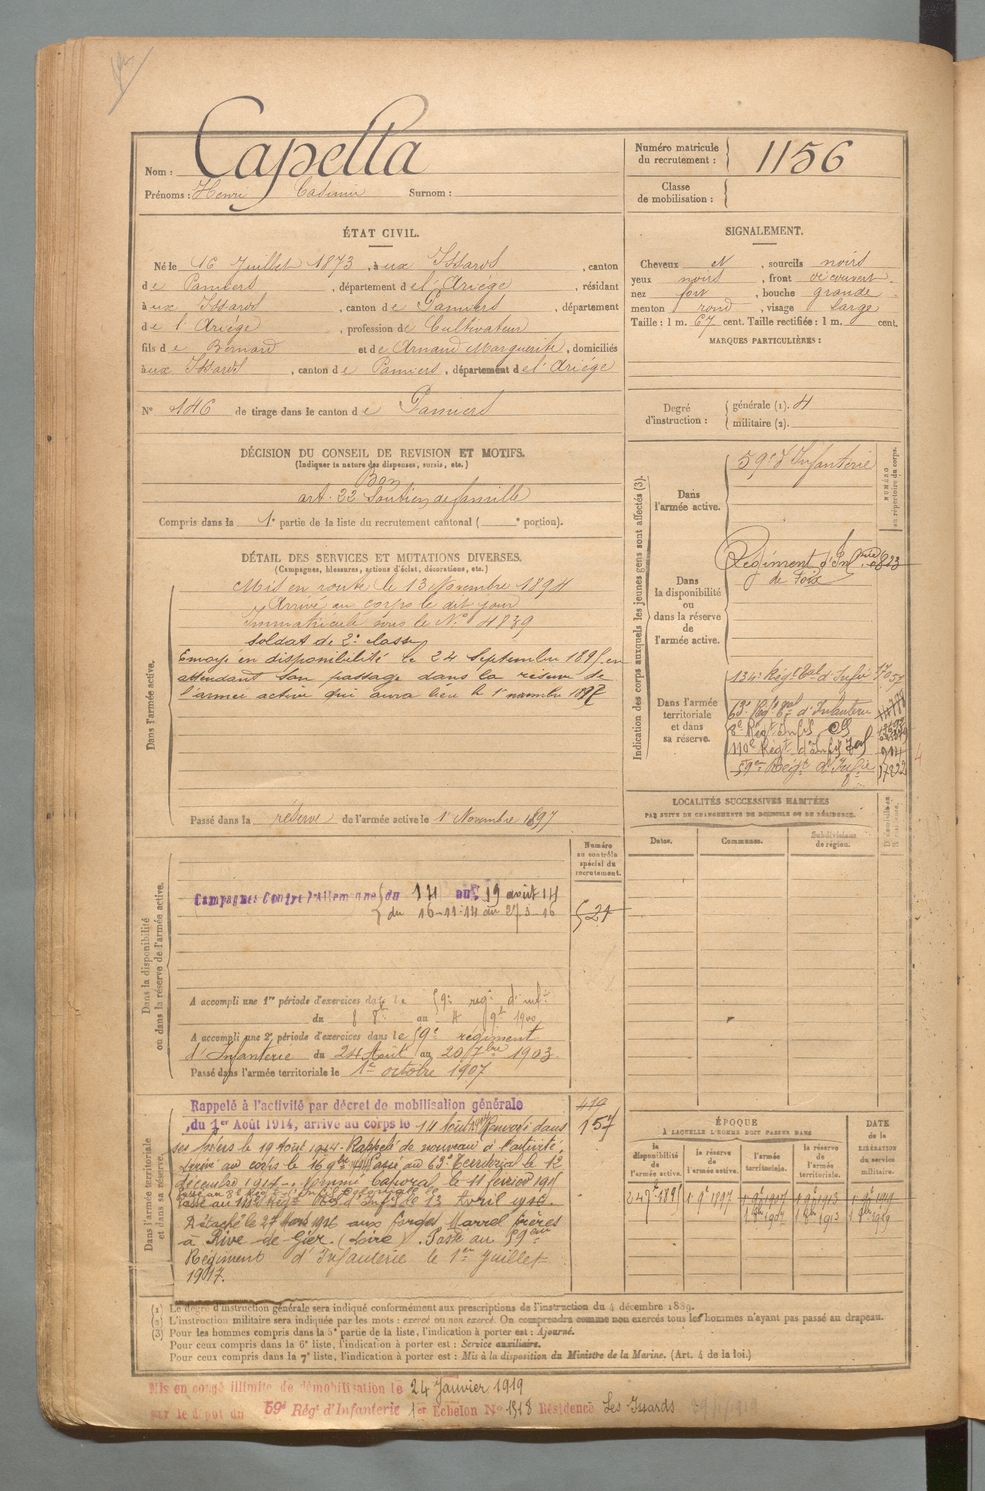 Nom : Capella
Prénoms : Henri Casimir Surnom :
Numéro matricule du recrutement : 1156
Classe de mobilisation :
ÉTAT CIVIL.
Né le 16 Juillet 1873, à ux Issards, canton
de Pamiers, département de l'Ariége, résidant
à ux Issards, canton de Pamiers, département
de l'Ariége, profession de Cultivateur
fils de Bernard et de Arnaud Marguerite, domiciliés
à ux Issards, canton de Pamiers, département de l'Ariége
N° 146 de tirage dans le canton de Pamiers
SIGNALEMENT.
Cheveux N, sourcils noirs
yeux noirs, front découvert
nez fort, bouche grande
menton rond, visage large
Taille : 1 m. 67 cent. Taille rectifiée : 1 m. cent.
MARQUES PARTICULIÈRES :
Degré d'instruction : générale (1). 4
militaire (2).
DÉCISION DU CONSEIL DE REVISION ET MOTIFS.
(Indiquer la nature des dispenses, sursis, etc.)
Bon
art. 22 Soutien de famille
Compris dans la 1e partie de la liste du recrutement cantonal ( e portion).
DÉTAIL DES SERVICES ET MUTATIONS DIVERSES.
(Campagnes, blessures, actions d'éclat, décorations, etc.)
Dans l'armée active.
Mis en route le 13 Novembre 1894
Arrivé au corps le dit jour
Immatriculé sous le N° 4839
Soldat de 2e classe
Envoyé en disponibilité le 24 Septembre 1895 en
attendant son passage dans la réserve de
l'armée active qui aura lieu le 1er novembre 1897
Passé dans la réserve de l'armée active le 1er Novembre 1897
Indication des corps auxquels les jeunes gens sont affectés (3).
NUMÉRO au répertoire du corps.
Dans l'armée active.
59e d'Infanterie
Dans la disponibilité ou dans la réserve de l'armée active.
Régiment d'Inf
de Foix
Dans l'armée territoriale et dans sa réserve.
134e Régt d'Infie
63e Régt d'Infanterie
8e Régt
110e Régt d'Infie
59e Régt d'Infie
LOCALITÉS SUCCESSIVES HABITÉES
PAR SUITE DE CHANGEMENTS DE DOMICILE OU DE RÉSIDENCE.
Dates.
Communes.
Subdivisions de région.
Dans la disponibilité ou dans la réserve de l'armée active.
Numéro au contrôle spécial du recrutement.
Campagnes Contre l'Allemagne du 14 au 19 août 14
du 16-11-14 au 27-3-16
21
A accompli une 1re période d'exercices dans le 59e régt d'infie
du au 1900
A accompli une 2e période d'exercices dans le 59e régiment
d'Infanterie du 24 Août au 20 7bre 1903
Passé dans l'armée territoriale le 1er octobre 1907
Dans l'armée territoriale et dans sa réserve.
157
Rappelé à l'activité par décret de mobilisation générale
du 1er Août 1914, arrivé au corps le 14 Août 1914 Renvoyé dans
ses foyers le 19 Août 1914. Rappelé de nouveau à l'activité.
Arrivé au corps le 16 9bre 1914 Passé au 63e Territorial le 12
décembre 1914. Nommé Caporal le 11 février 1915
Passé au d'Infie le 13 Avril 1916.
Détaché le 27 Mars 1916 aux forges Marrel frères
à Rive de Gier. (Loire). Passé au 59eme
Régiment d'Infanterie le 1er Juillet
1917.
ÉPOQUE
À LAQUELLE L'HOMME DOIT PASSER DANS
la disponibilité de l'armée active.
la réserve de l'armée active.
l'armée territoriale.
la réserve de l'armée territoriale.
DATE de la LIBÉRATION du service militaire.
24 7e 1895
1 9e 1897
1 9e 1907
1 9e 1913
1 9e 1919
1 8bre 1907
1 8bre 1913
1 8bre 1919
(1) Le degré d'instruction générale sera indiqué conformément aux prescriptions de l'instruction du 4 décembre 1889.
(2) L'instruction militaire sera indiquée par les mots : exercé ou non exercé. On comprendra comme non exercés tous les hommes n'ayant pas passé au drapeau.
(3) Pour les hommes compris dans la 5e partie de la liste, l'indication à porter est : Ajourné.
Pour ceux compris dans la 6e liste, l'indication à porter est : Service auxiliaire.
Pour ceux compris dans la 7e liste, l'indication à porter est : Mis à la disposition du Ministre de la Marine. (Art. 4 de la loi.)
Mis en congé illimité de démobilisation le 24 Janvier 1919
sur le dépôt du 59e Régt d'Infanterie 1er Echelon N° 1518 Résidence Les Issards